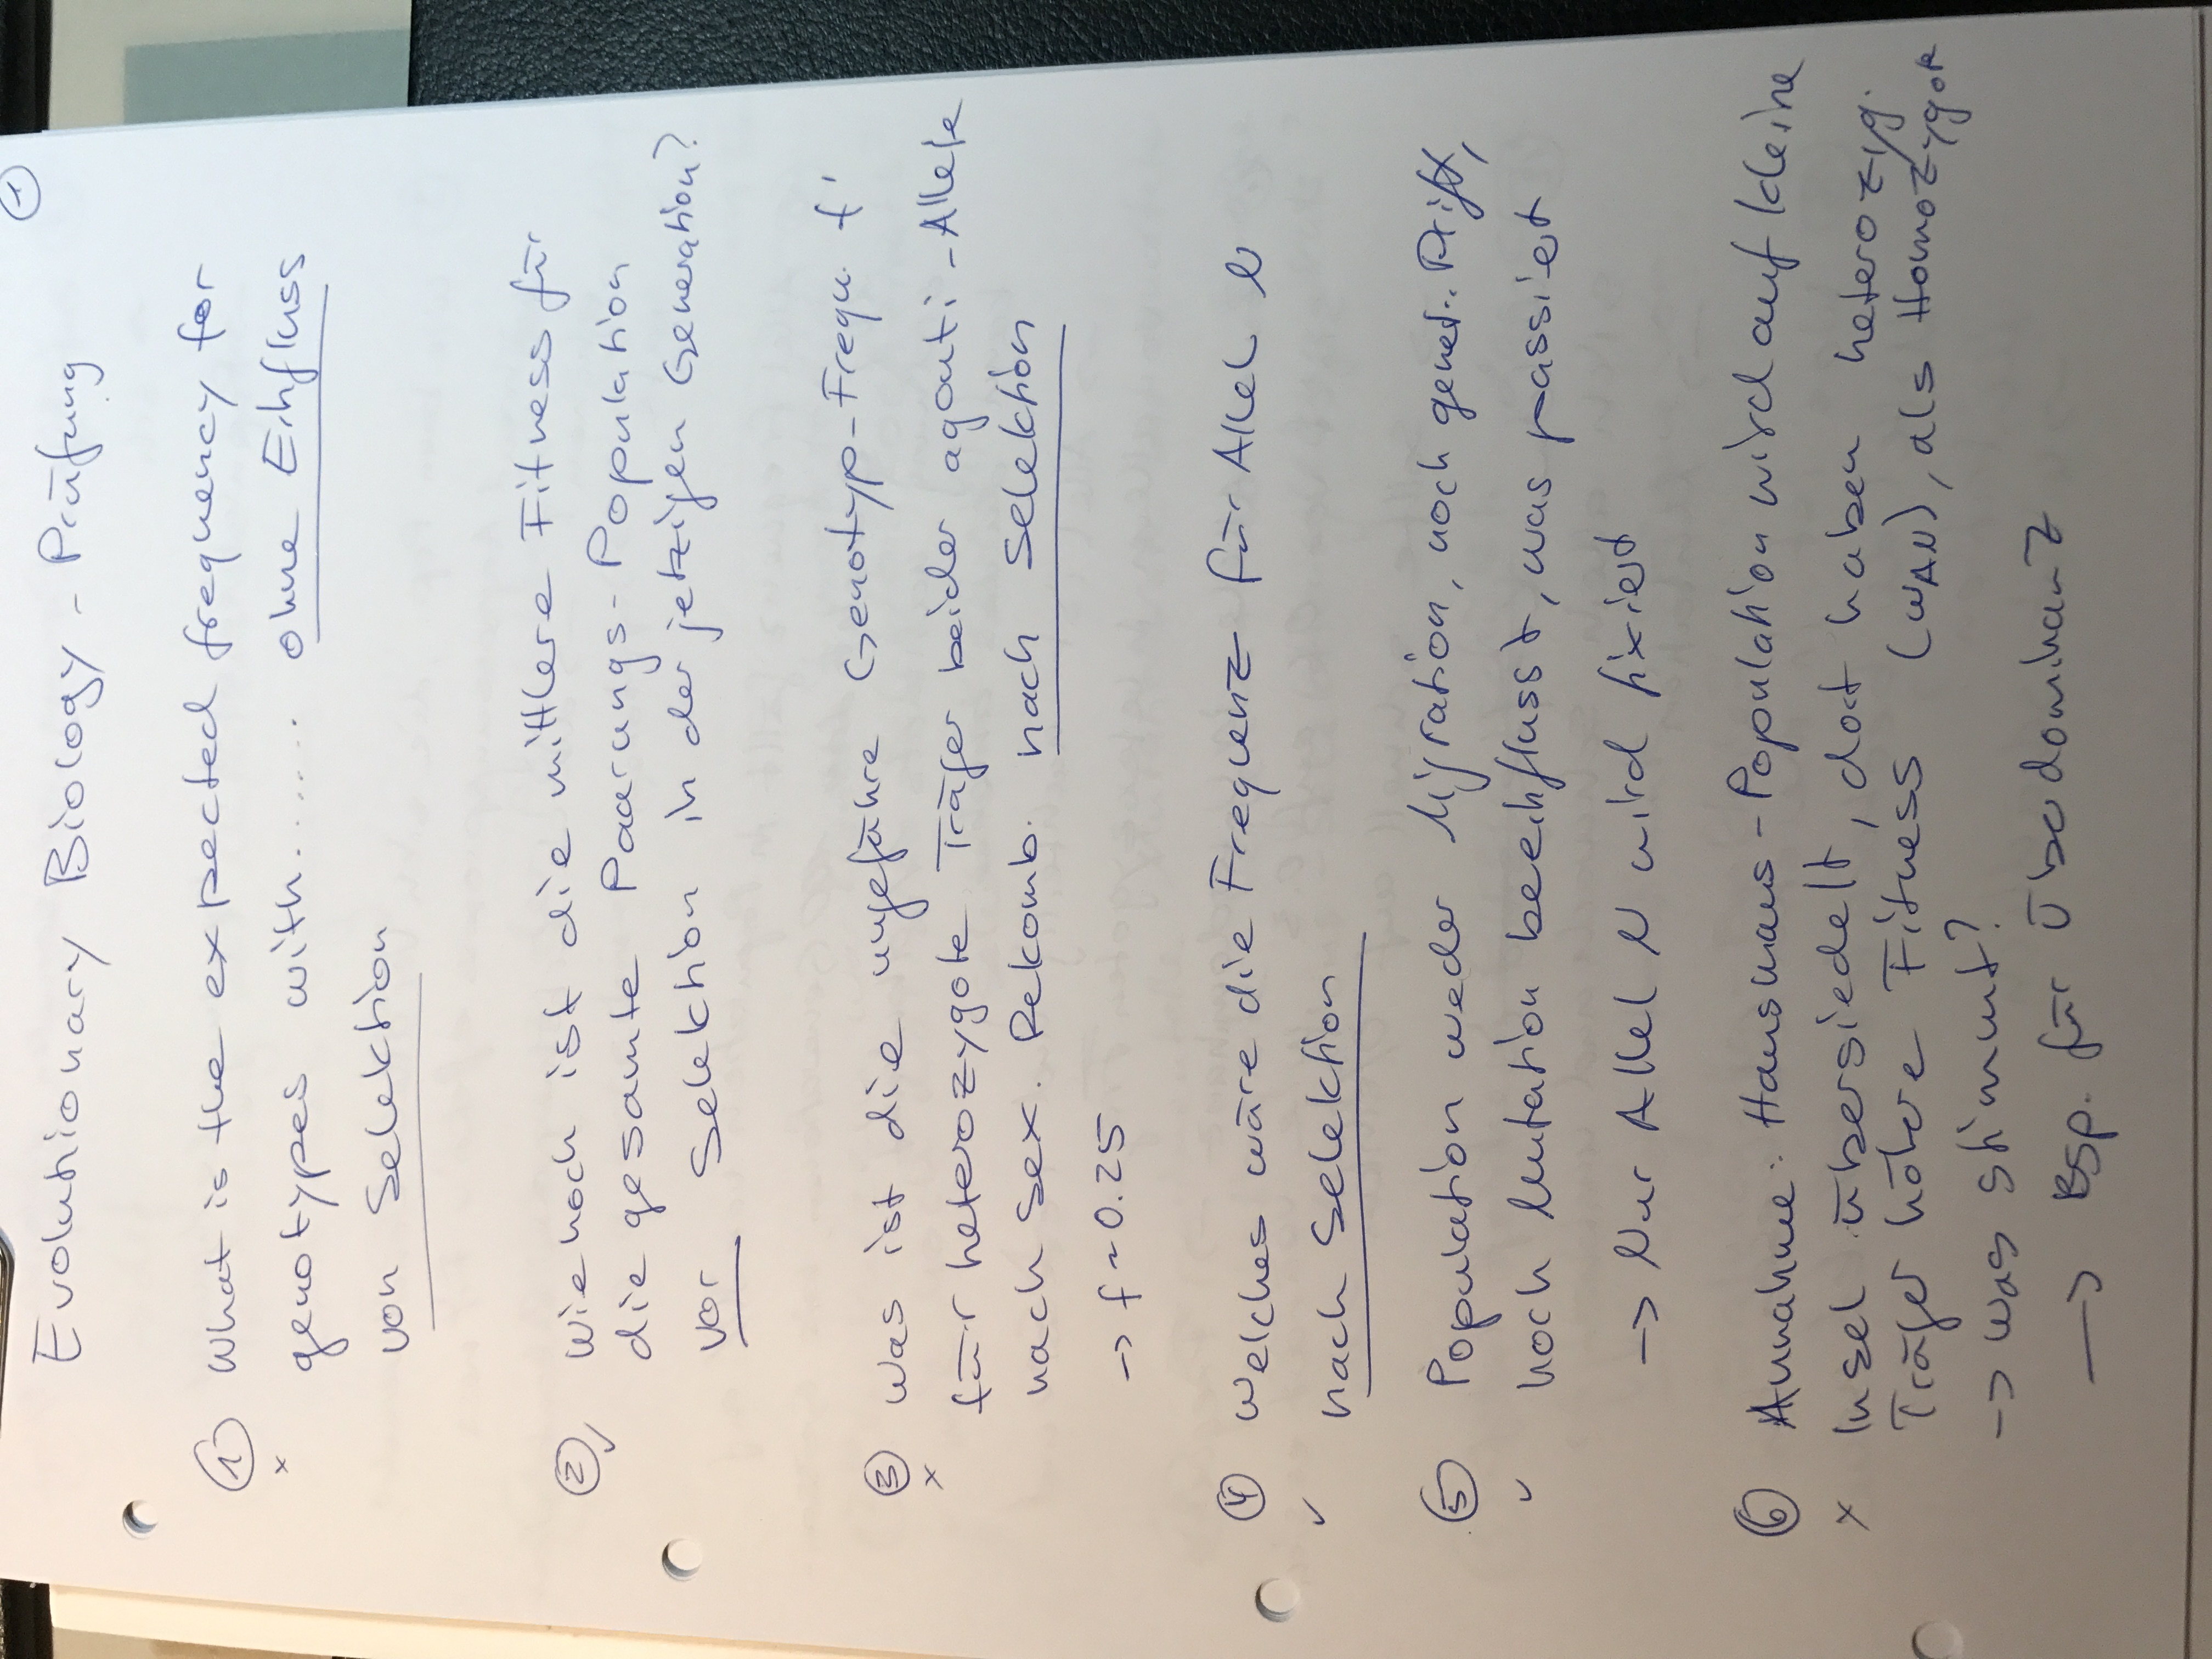 1
Evolutionary Biology - Prüfung
1 What is the expected frequency for
x genotypes with....... ohne Einfluss
von Selektion
2 Wie hoch ist die mittlere Fitness für
✓ die gesamte Paarungs-Population
vor Selektion in der jetzigen Generation?
3 Was ist die ungefähre Genotyp-Frequ. f'
x für heterozygote Träger beider agouti-Allele
nach sex. Rekomb. nach Selektion
→ f~0.25
4 Welches wäre die Frequenz für Allel N
✓ nach Selektion
5 Population weder Migration, noch genet. Drift,
✓ noch Mutation beeinflusst, was passiert
→ Nur Allel N wird fixiert
6 Annahme: Hausmaus-Population wird auf kleine
x Insel übersiedelt, dort haben heterozyg.
Träger höhere Fitness (wAN), als Homozygote
→ was stimmt?
→ Bsp. für Überdominanz